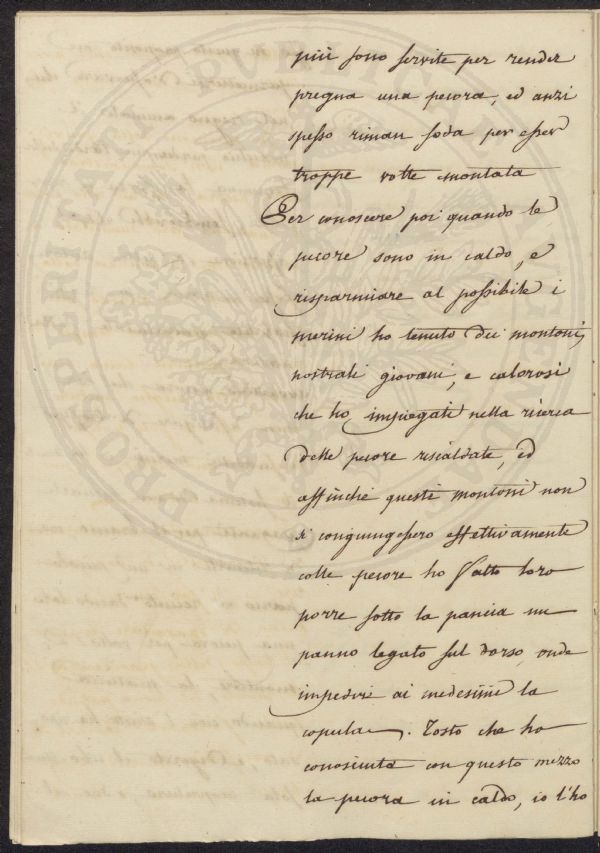 più sono servite per render
pregna una pecora, ed anzi
spesso riman soda per esser
troppe volte montata
Per conoscere poi quando le
pecore sono in caldo, e
risparmiare al possibile i
merini ho tenuto dei montoni
nostrali giovani, e calorosi
che ho impiegati nella ricerca
delle pecore riscaldate, ed
affinchè questi montoni non
si congiungessero effettivamente
colle pecore ho fatto loro
porre sotto la pancia un
panno legato sul dorso, onde
impedire ai medesimi la
copula. Tosto che ho
conosciuta con questo mezzo
la pecora in caldo, io l'ho
PROSPERITATI PUBLICAE